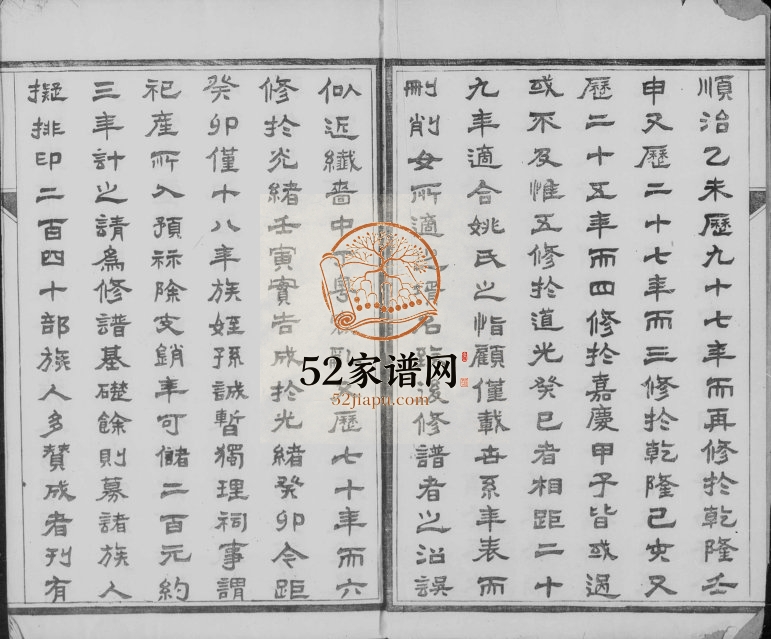 順治乙未歷九十七年而再修於乾隆壬
申又歷二十七年而三修於乾隆己亥又
歷二十五年而四修於嘉慶甲子皆或過
或不及惟五修於道光癸巳者相距二十
九年適合姚氏之恉顧僅載世系年表而
刪削女所適之壻名貽後修譜者之沿誤
似近纖嗇中更粵
歷七十年而六
修於光緒壬寅實告成於光緒癸卯今距
癸卯僅十八年族姪孫誠暫獨理祠事謂
祀產所入預祘除支銷年可儲二百元約
三年計之請為修譜基礎餘則募諸族人
擬排印二百四十部族人多贊成者刊有
52家谱网
52jiapu.com